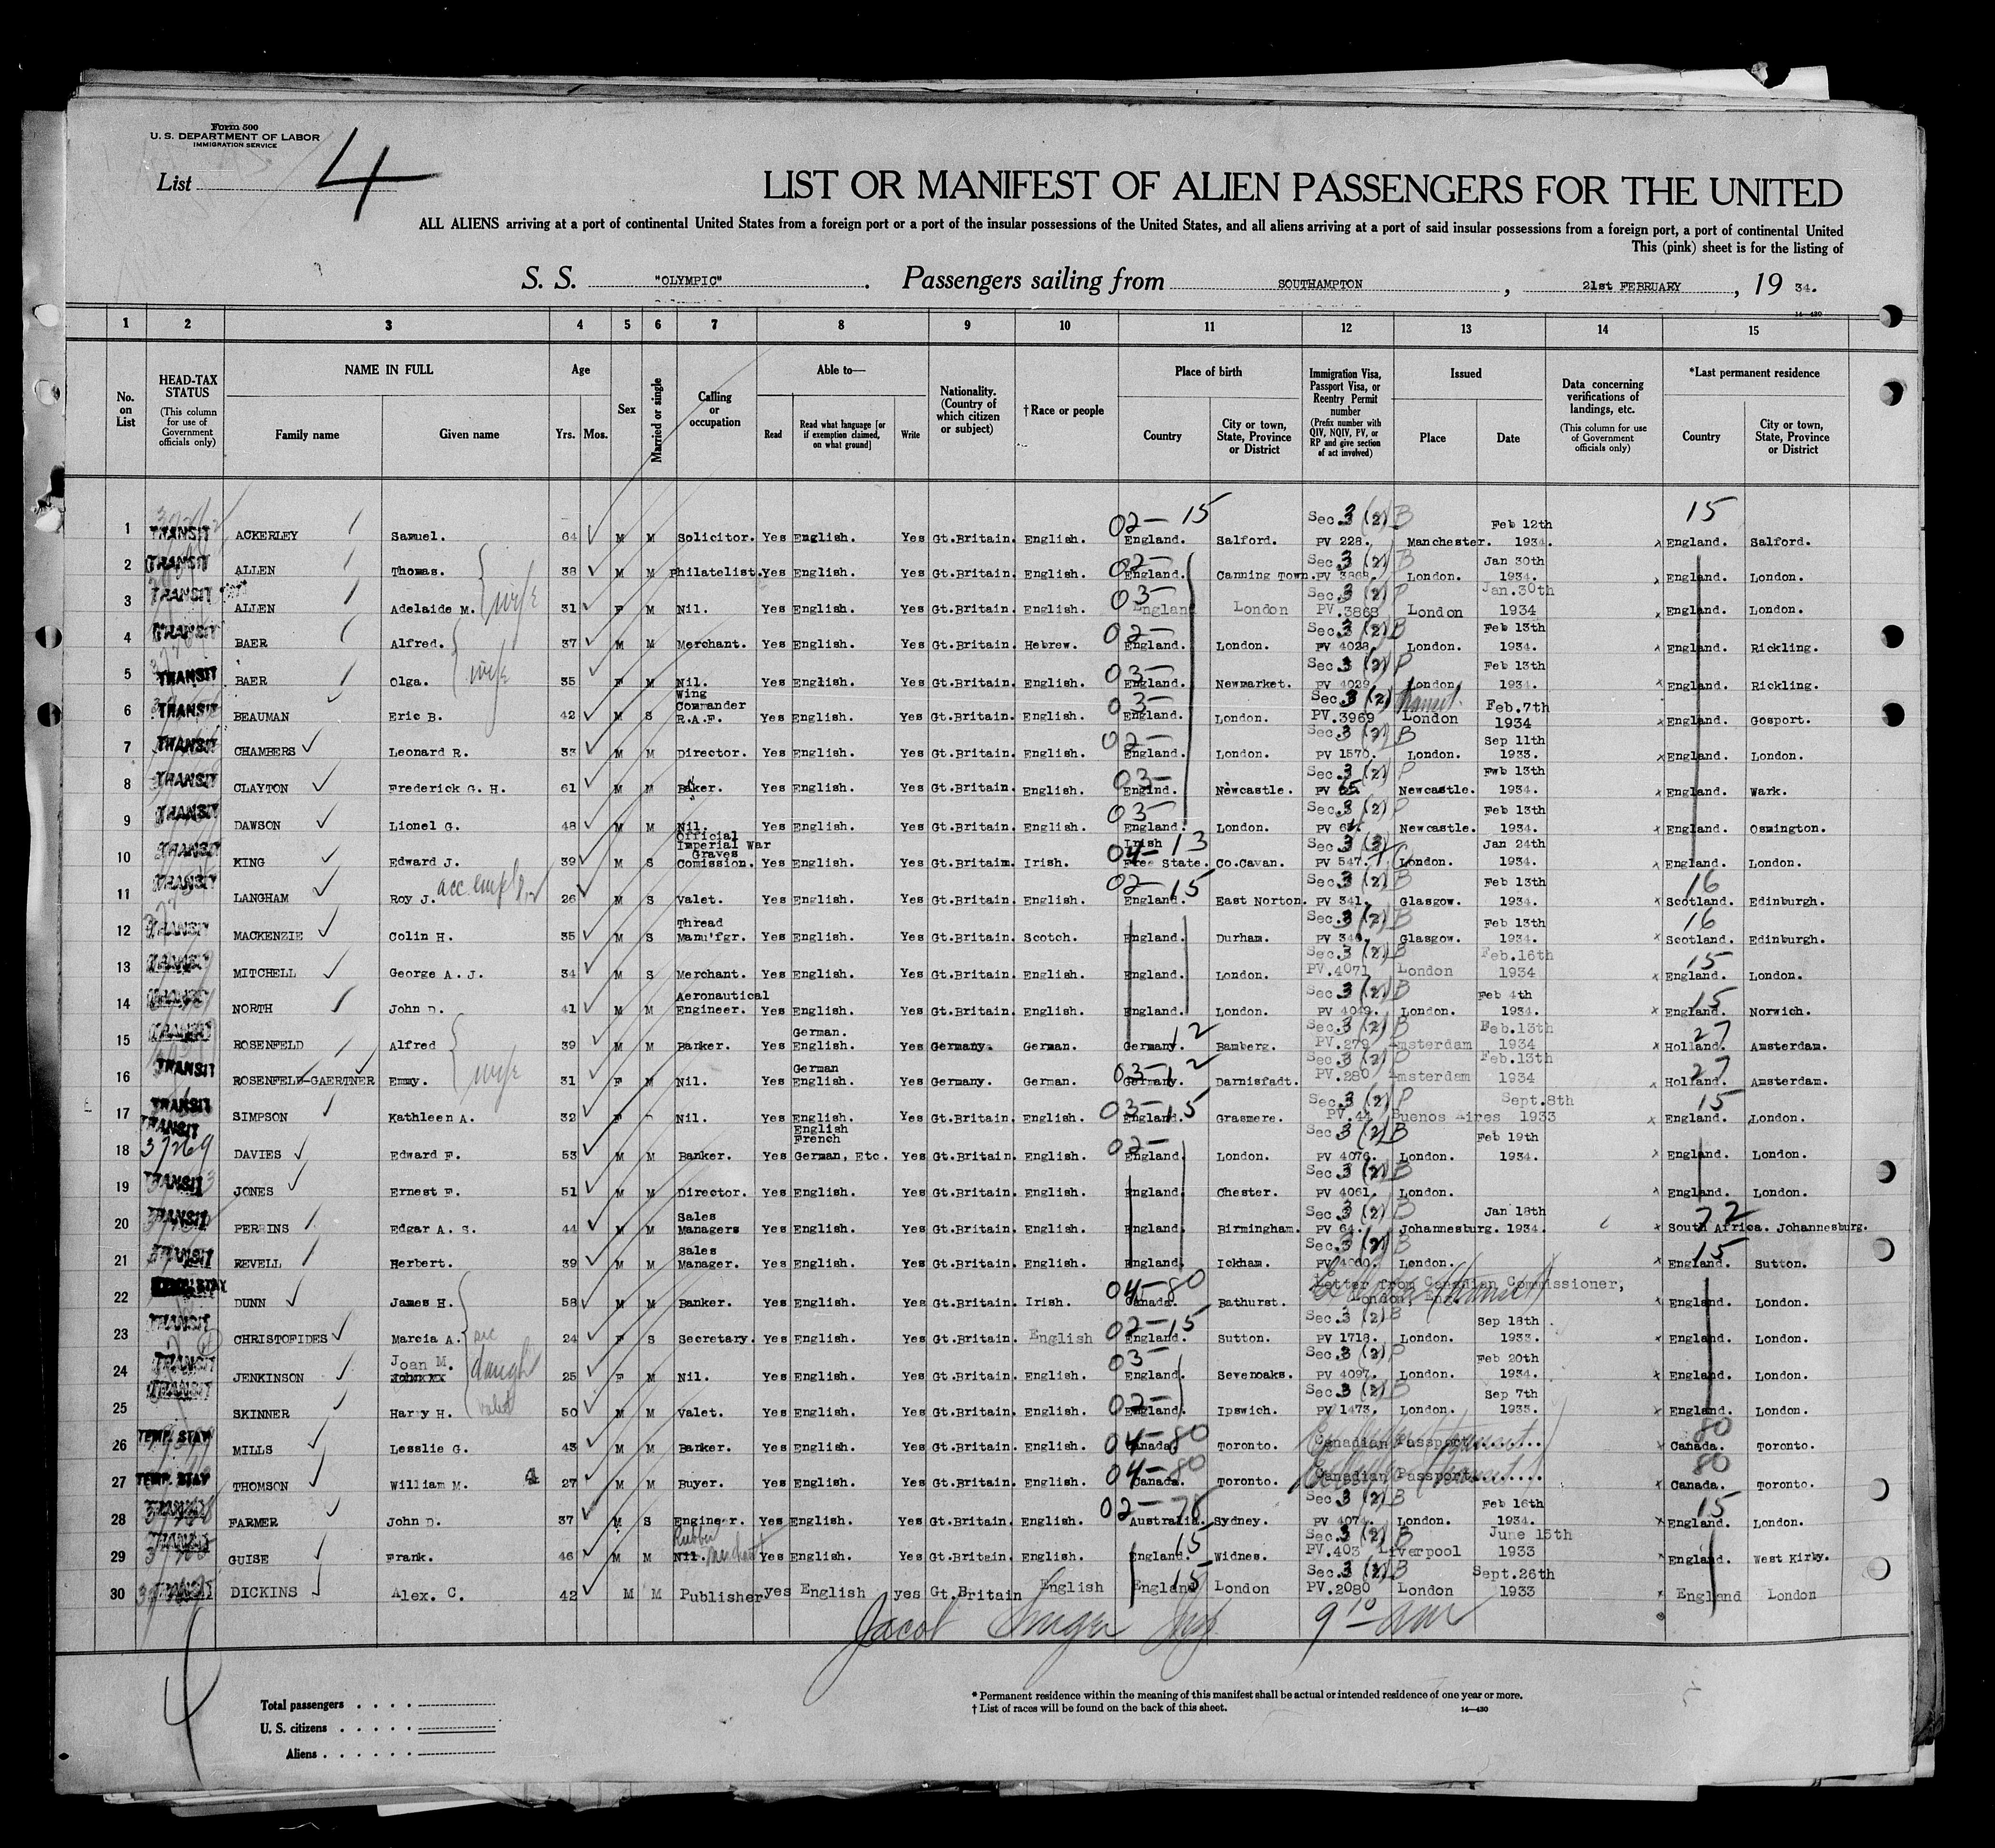 Form 500
U. S. DEPARTMENT OF LABOR
IMMIGRATION SERVICE
List 4
LIST OR MANIFEST OF ALIEN PASSENGERS FOR THE UNITED
ALL ALIENS arriving at a port of continental United States from a foreign port or a port of the insular possessions of the United States, and all aliens arriving at a port of said insular possessions from a foreign port, a port of continental United
This (pink) sheet is for the listing of
S. S. "OLYMPIC". Passengers sailing from SOUTHAMPTON, 21st FEBRUARY, 19 34.
14—430
1 2 3 4 5 6 7 8 9 10 11 12 13 14 15
No. on List
HEAD-TAX STATUS
(This column for use of Government officials only)
NAME IN FULL
Family name Given name
Age
Yrs. Mos.
Sex
Married or single
Calling or occupation
Able to—
Read
Read what language [or if exemption claimed, on what ground]
Write
Nationality. (Country of which citizen or subject)
†Race or people
Place of birth
Country
City or town, State, Province or District
Immigration Visa, Passport Visa, or Reentry Permit number
(Prefix number with QIV, NQIV, PV, or RP and give section of act involved)
Issued
Place Date
Data concerning verifications of landings, etc.
(This column for use of Government officials only)
*Last permanent residence
Country
City or town, State, Province or District
1 TRANSIT ACKERLEY Samuel. 64 M M Solicitor. Yes English. Yes Gt.Britain. English. 02— 15 England. Salford. Sec.3 (2) B PV 228. Manchester. Feb 12th 1934. 15 x England. Salford.
2 TRANSIT ALLEN Thomas. 38 M M Philatelist. Yes English. Yes Gt.Britain. English. 02— England. Canning Town. Sec.3 (2) B PV 3868. London. Jan 30th 1934. x England. London.
3 TRANSIT ALLEN Adelaide M. wife 31 F M Nil. Yes English. Yes Gt.Britain. English. 03— England London Sec.3 (2) P PV.3868 London Jan.30th 1934 x England. London.
4 TRANSIT BAER Alfred. 37 M M Merchant. Yes English. Yes Gt.Britain. Hebrew. 02— England. London. Sec.3 (2) B PV 4028. London. Feb 13th 1934. x England. Rickling.
5 TRANSIT BAER Olga. wife 35 F M Nil. Yes English. Yes Gt.Britain. English. 03— England. Newmarket. Sec.3 (2) P PV 4029. London. Feb 13th 1934. x England. Rickling.
6 TRANSIT BEAUMAN Eric B. 42 M S Wing Commander R.A.F. Yes English. Yes Gt.Britain. English. 03— England. London. Sec.3 (2) Transit. PV.3969 London Feb.7th 1934 x England. Gosport.
7 TRANSIT CHAMBERS Leonard R. 33 M M Director. Yes English. Yes Gt.Britain. English. 02— England. London. Sec.3 (2) B PV 1570. London. Sep 11th 1933. x England. London.
8 TRANSIT CLAYTON Frederick G. H. 61 M M Baker. Yes English. Yes Gt.Britain. English. 03— Englnd. Newcastle. Sec.3 (2) P PV 65. Newcastle. Fwb 13th 1934. x England. Wark.
9 TRANSIT DAWSON Lionel G. 48 M M Nil. Yes English. Yes Gt.Britain. English. 03— England. London. Sec.3 (2) P PV Newcastle. Feb 13th 1934. x England. Osmington.
10 TRANSIT KING Edward J. 39 M S Official Imperial War Graves Comission. Yes English. Yes Gt.Britain. Irish. 04— 13 Irish Free State. Co.Cavan. Sec 3 PV 547. London. Jan 24th 1934. x England. London.
11 TRANSIT LANGHAM Roy J. 26 M S Valet. Yes English. Yes Gt.Britain. English. 02—15 England. East Norton. Sec.3 (2) B PV 341. Glasgow. Feb 13th 1934. 16 x Scotland. Edinburgh.
12 TRANSIT MACKENZIE Colin H. 35 M S Thread Manu'fgr. Yes English. Yes Gt.Britain. Scotch. England. Durham. Sec.3 (2) B PV 340. Glasgow. Feb 13th 1934. 16 x Scotland. Edinburgh.
13 TRANSIT MITCHELL George A. J. 34 M S Merchant. Yes English. Yes Gt.Britain. English. England. London. Sec.3 (2) B PV.4071 London Feb.16th 1934 15 x England. London.
14 NORTH John D. 41 M M Aeronautical Engineer. Yes English. Yes Gt.Britain. English. England. London. Sec 3 (2) B PV 4049. London. Feb 4th 1934. 15 x England. Norwich.
15 TRANSIT ROSENFELD Alfred 39 M M Banker. Yes German. English. Yes Germany. German. 12 Germany. Bamberg. Sec.3 (2) B PV.279 Amsterdam Feb.13th 1934 27 x Holland. Amsterdam.
16 TRANSIT ROSENFELD-GAERTNER Emmy. wife 31 F M Nil. Yes German English. Yes Germany. German. 03—12 Germany. Darnisfadt. Sec.3 (2) P PV.280 Amsterdam Feb.13th 1934 27 x Holland. Amsterdam.
17 TRANSIT SIMPSON Kathleen A. 32 F Nil. Yes English. Yes Gt.Britain. English. 03—15 England. Grasmere. Sec 3 (2) P PV.44 Buenos Aires Sept.8th 1933 15 x England. London.
18 TRANSIT 37269 DAVIES Edward F. 53 M M Banker. Yes English French German, Etc. Yes Gt.Britain. English. 02— England. London. Sec 3 (2) B PV 4076. London. Feb 19th 1934. x England. London.
19 TRANSIT JONES Ernest F. 51 M M Director. Yes English. Yes Gt.Britain. English. England. Chester. Sec 3 (2) B PV 4061. London. x England. London.
20 TRANSIT PERRINS Edgar A. S. 44 M M Sales Managers Yes English. Yes Gt.Britain. English. England. Birmingham. Sec 3 (2) B PV 64. Johannesburg. Jan 18th 1934. 72 x South Africa. Johannesburg.
21 TRANSIT REVELL Herbert. 39 M M Sales Manager. Yes English. Yes Gt.Britain. English. England. Ickham. Sec.3 (2) B PV 4060. London. 15 x England. Sutton.
22 DUNN James H. 58 M M Banker. Yes English. Yes Gt.Britain. Irish. 04—80 Canada. Bathurst. Letter from Canadian Commissioner, London, Eng. x England. London.
23 TRANSIT CHRISTOFIDES Marcia A. sec 24 F S Secretary. Yes English. Yes Gt.Britain. English 02—15 England. Sutton. Sec 3 (2) B PV 1718. London. Sep 18th 1933. x England. London.
24 TRANSIT JENKINSON Joan M. daught 25 F M Nil. Yes English. Yes Gt.Britain. English. 03— England. Sevenoaks. Sec 3 (2) P PV 4097. London. Feb 20th 1934. x England. London.
25 TRANSIT SKINNER Harry H. valet 50 M M Valet. Yes English. Yes Gt.Britain. English. 02— England. Ipswich. Sec 3 (2) B PV 1473. London. Sep 7th 1933. x England. London.
26 TEMP. STAY MILLS Lesslie G. 43 M M Banker. Yes English. Yes Gt.Britain. English. 04—80 Canada. Toronto. Canadian Passport........ 80 x Canada. Toronto.
27 TEMP. STAY THOMSON William M. 4 27 M M Buyer. Yes English. Yes Gt.Britain. English. 04—80 Canada. Toronto. Canadian Passport........ 80 x Canada. Toronto.
28 TRANSIT FARMER John D. 37 M S Engineer. Yes English. Yes Gt.Britain. English. 02— Australia. Sydney. Sec 3 (2) B PV 4074. London. Feb 16th 1934. 15 x England. London.
29 TRANSIT GUISE Frank. 46 M M Nil. Rubber Merchant Yes English. Yes Gt.Britain. English. 15 England. Widnes. Sec.3 (2) B PV.403 Liverpool June 15th 1933 x England. West Kirby.
30 TRANSIT DICKINS Alex. C. 42 M M Publisher yes English yes Gt.Britain English 15 England London Sec.3 (2) B PV.2080 London Sept.26th 1933 x England London
Jacob Singer Insp 9 10 am
4
Total passengers . . . .
U. S. citizens . . . . .
Aliens . . . . . .
* Permanent residence within the meaning of this manifest shall be actual or intended residence of one year or more.
† List of races will be found on the back of this sheet.
14—430